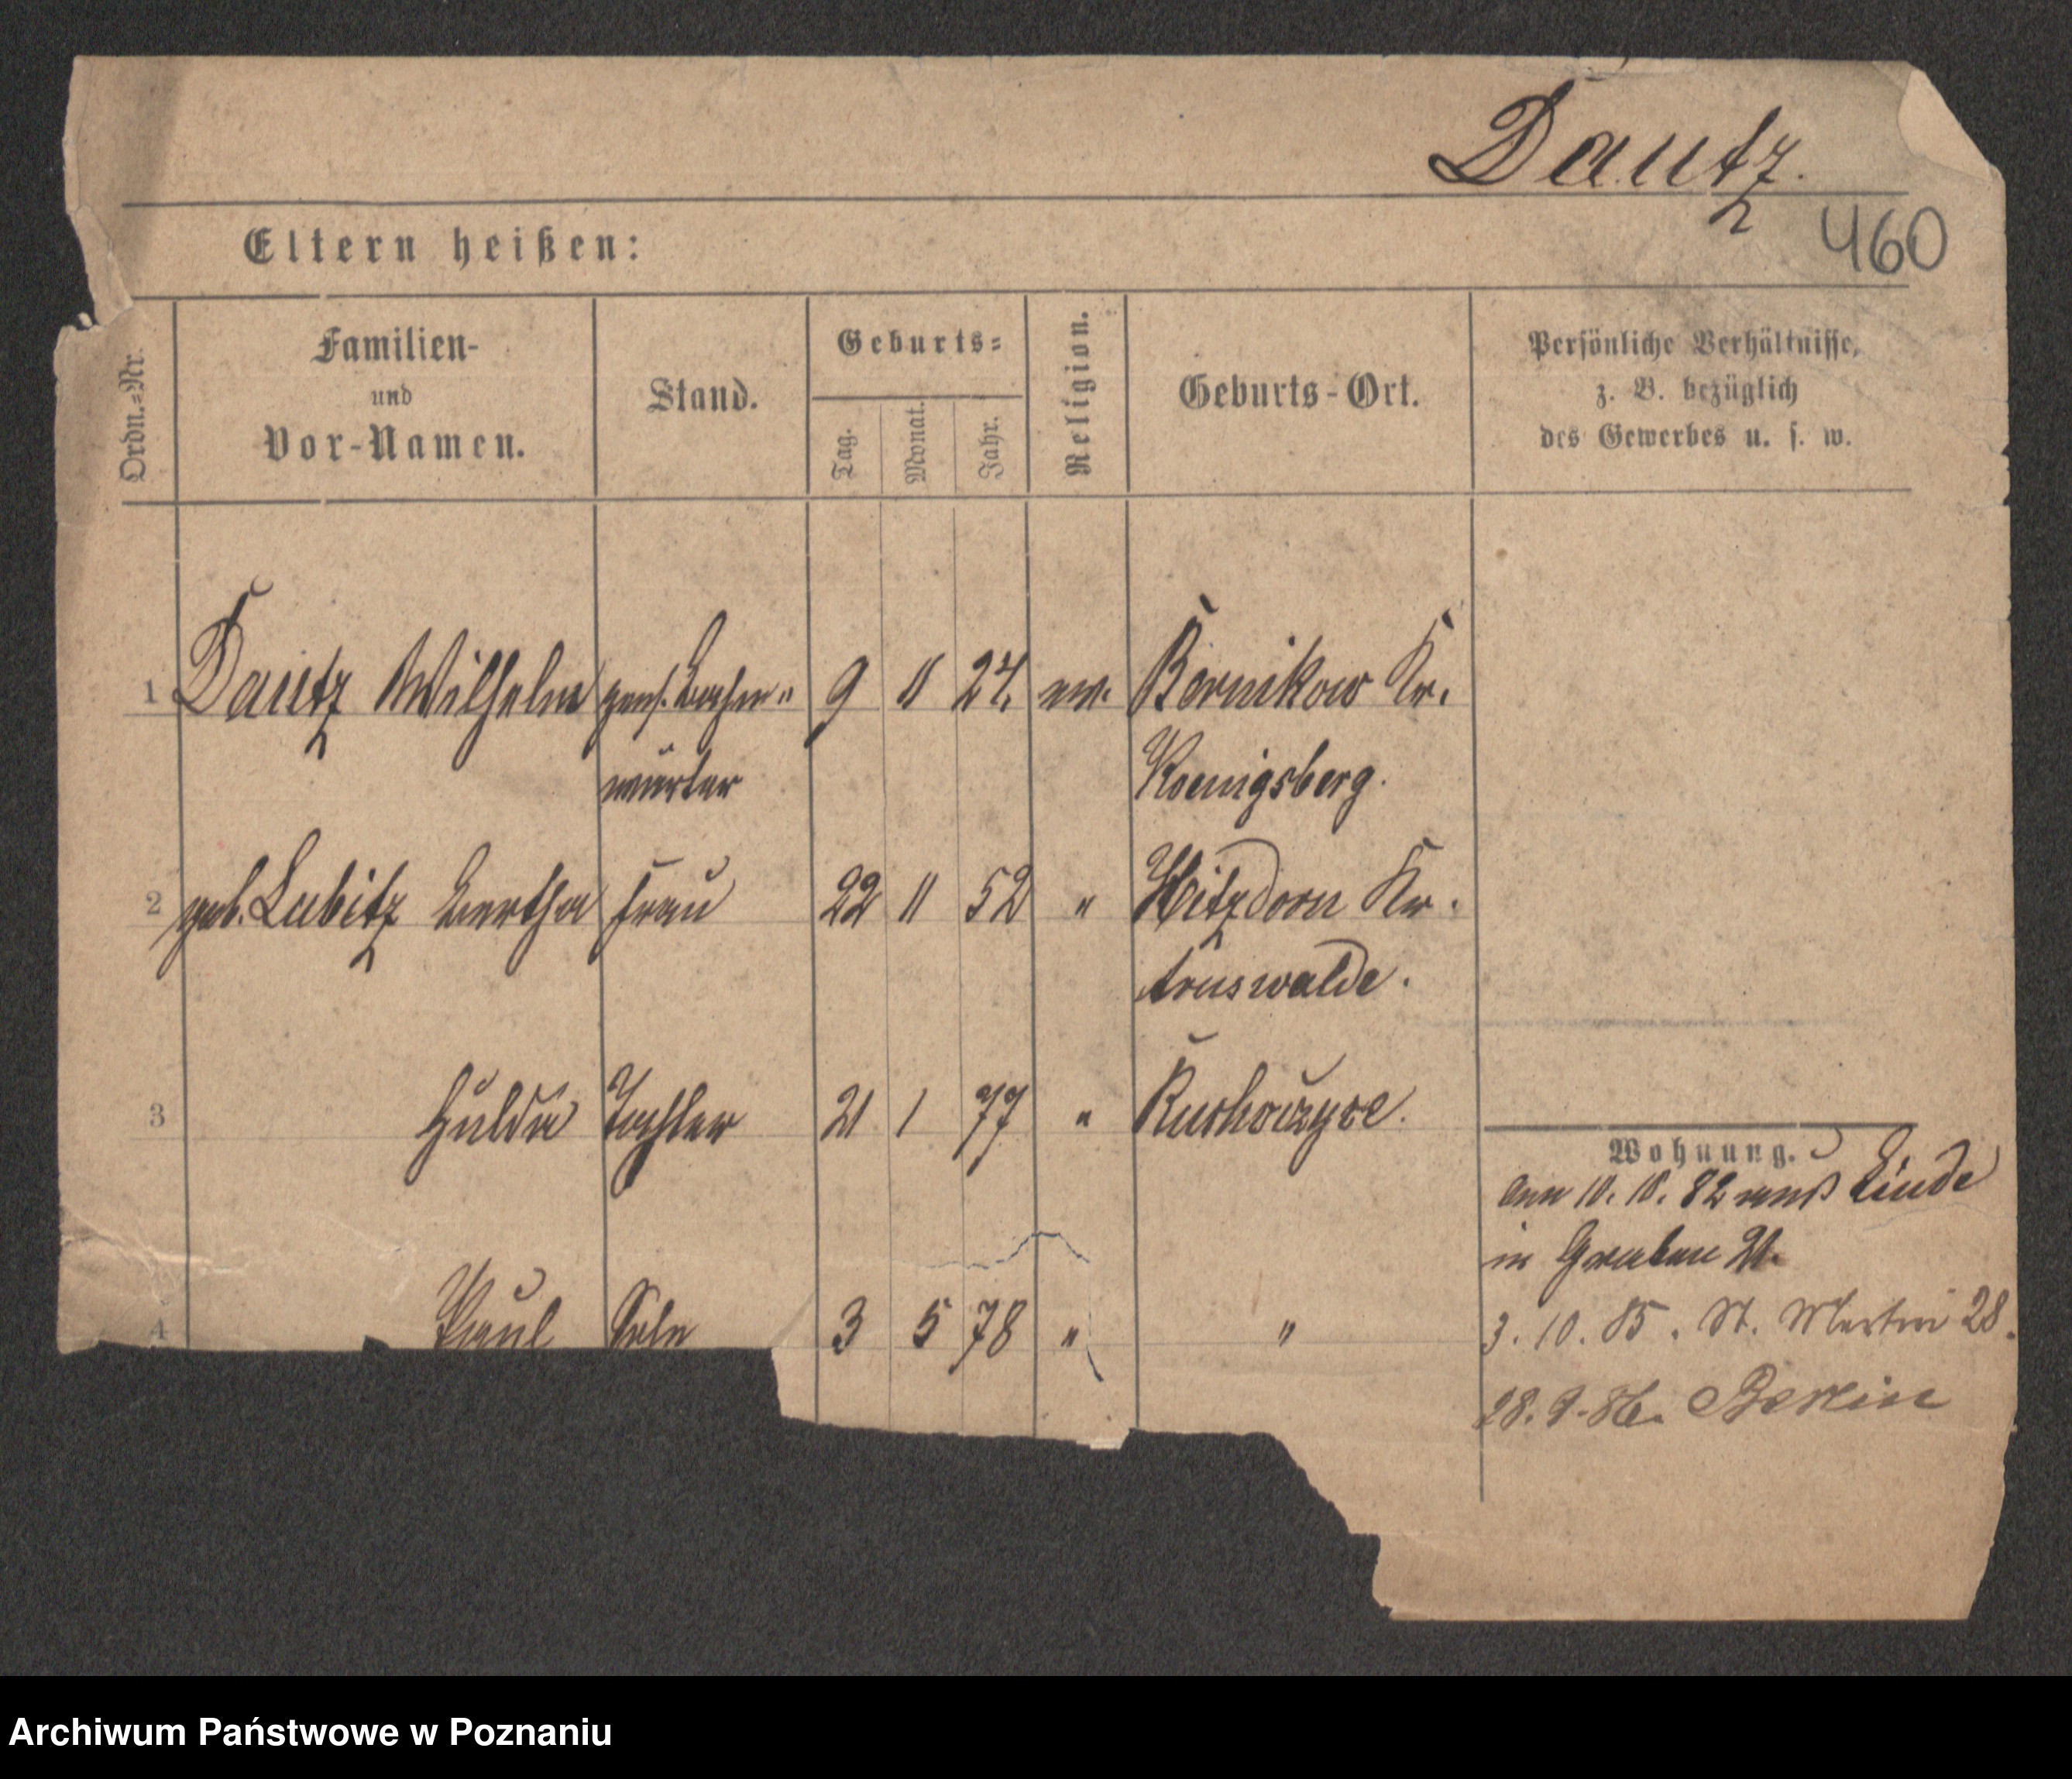 Dautz.
460
Eltern heißen:
Ordn.=Nr.
Familien-
und
Vor-Namen.
Stand.
Geburts=
Tag.
Monat.
Jahr.
Religion.
Geburts-Ort.
Persönliche Verhältnisse,
z. B. bezüglich
des Gewerbes u. s. w.
1 Dautz Wilhelm pens. Bahn- 9 11 24 ev. Bernikow Kr.
wärter Koenigsberg.
2 geb. Lubitz Bertha Frau 22 11 52 " Hitzdorn Kr.
Arnswalde.
3 Hulda Tochter 21 1 77 "
4 Paul Sohn 3 5 78 " "
Wohnung.
10. 82 Linde
in Graben 21.
3. 10. 85. St. Martin 28.
28. 9. 86. Berlin
Archiwum Państwowe w Poznaniu